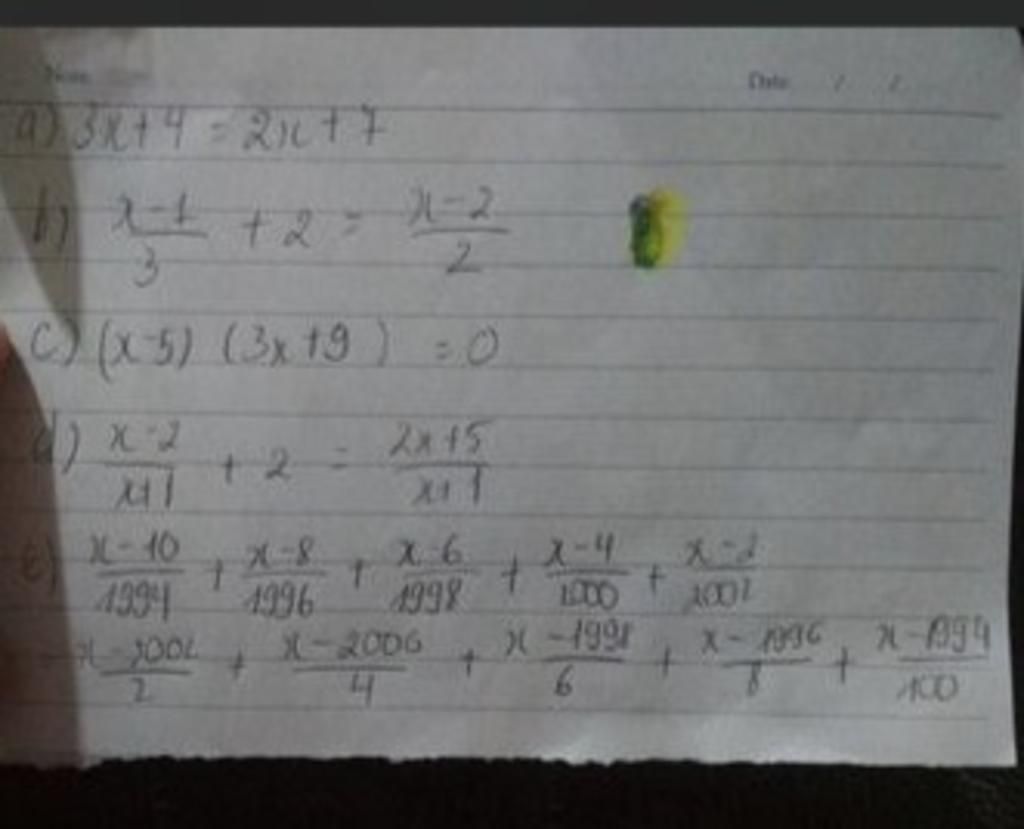 Date / /
a) 3x+4 = 2x+7
b) x-1/3 + 2 = x-2/2
c) (x-5) (3x+9) = 0
d) x-2/x+1 + 2 = 2x+5/x+1
e) x-10/1994 + x-8/1996 + x-6/1998 + x-4/2000 + x-2/2002
x-2002/2 + x-2006/4 + x-1998/6 + x-1996/8 + x-1994/100